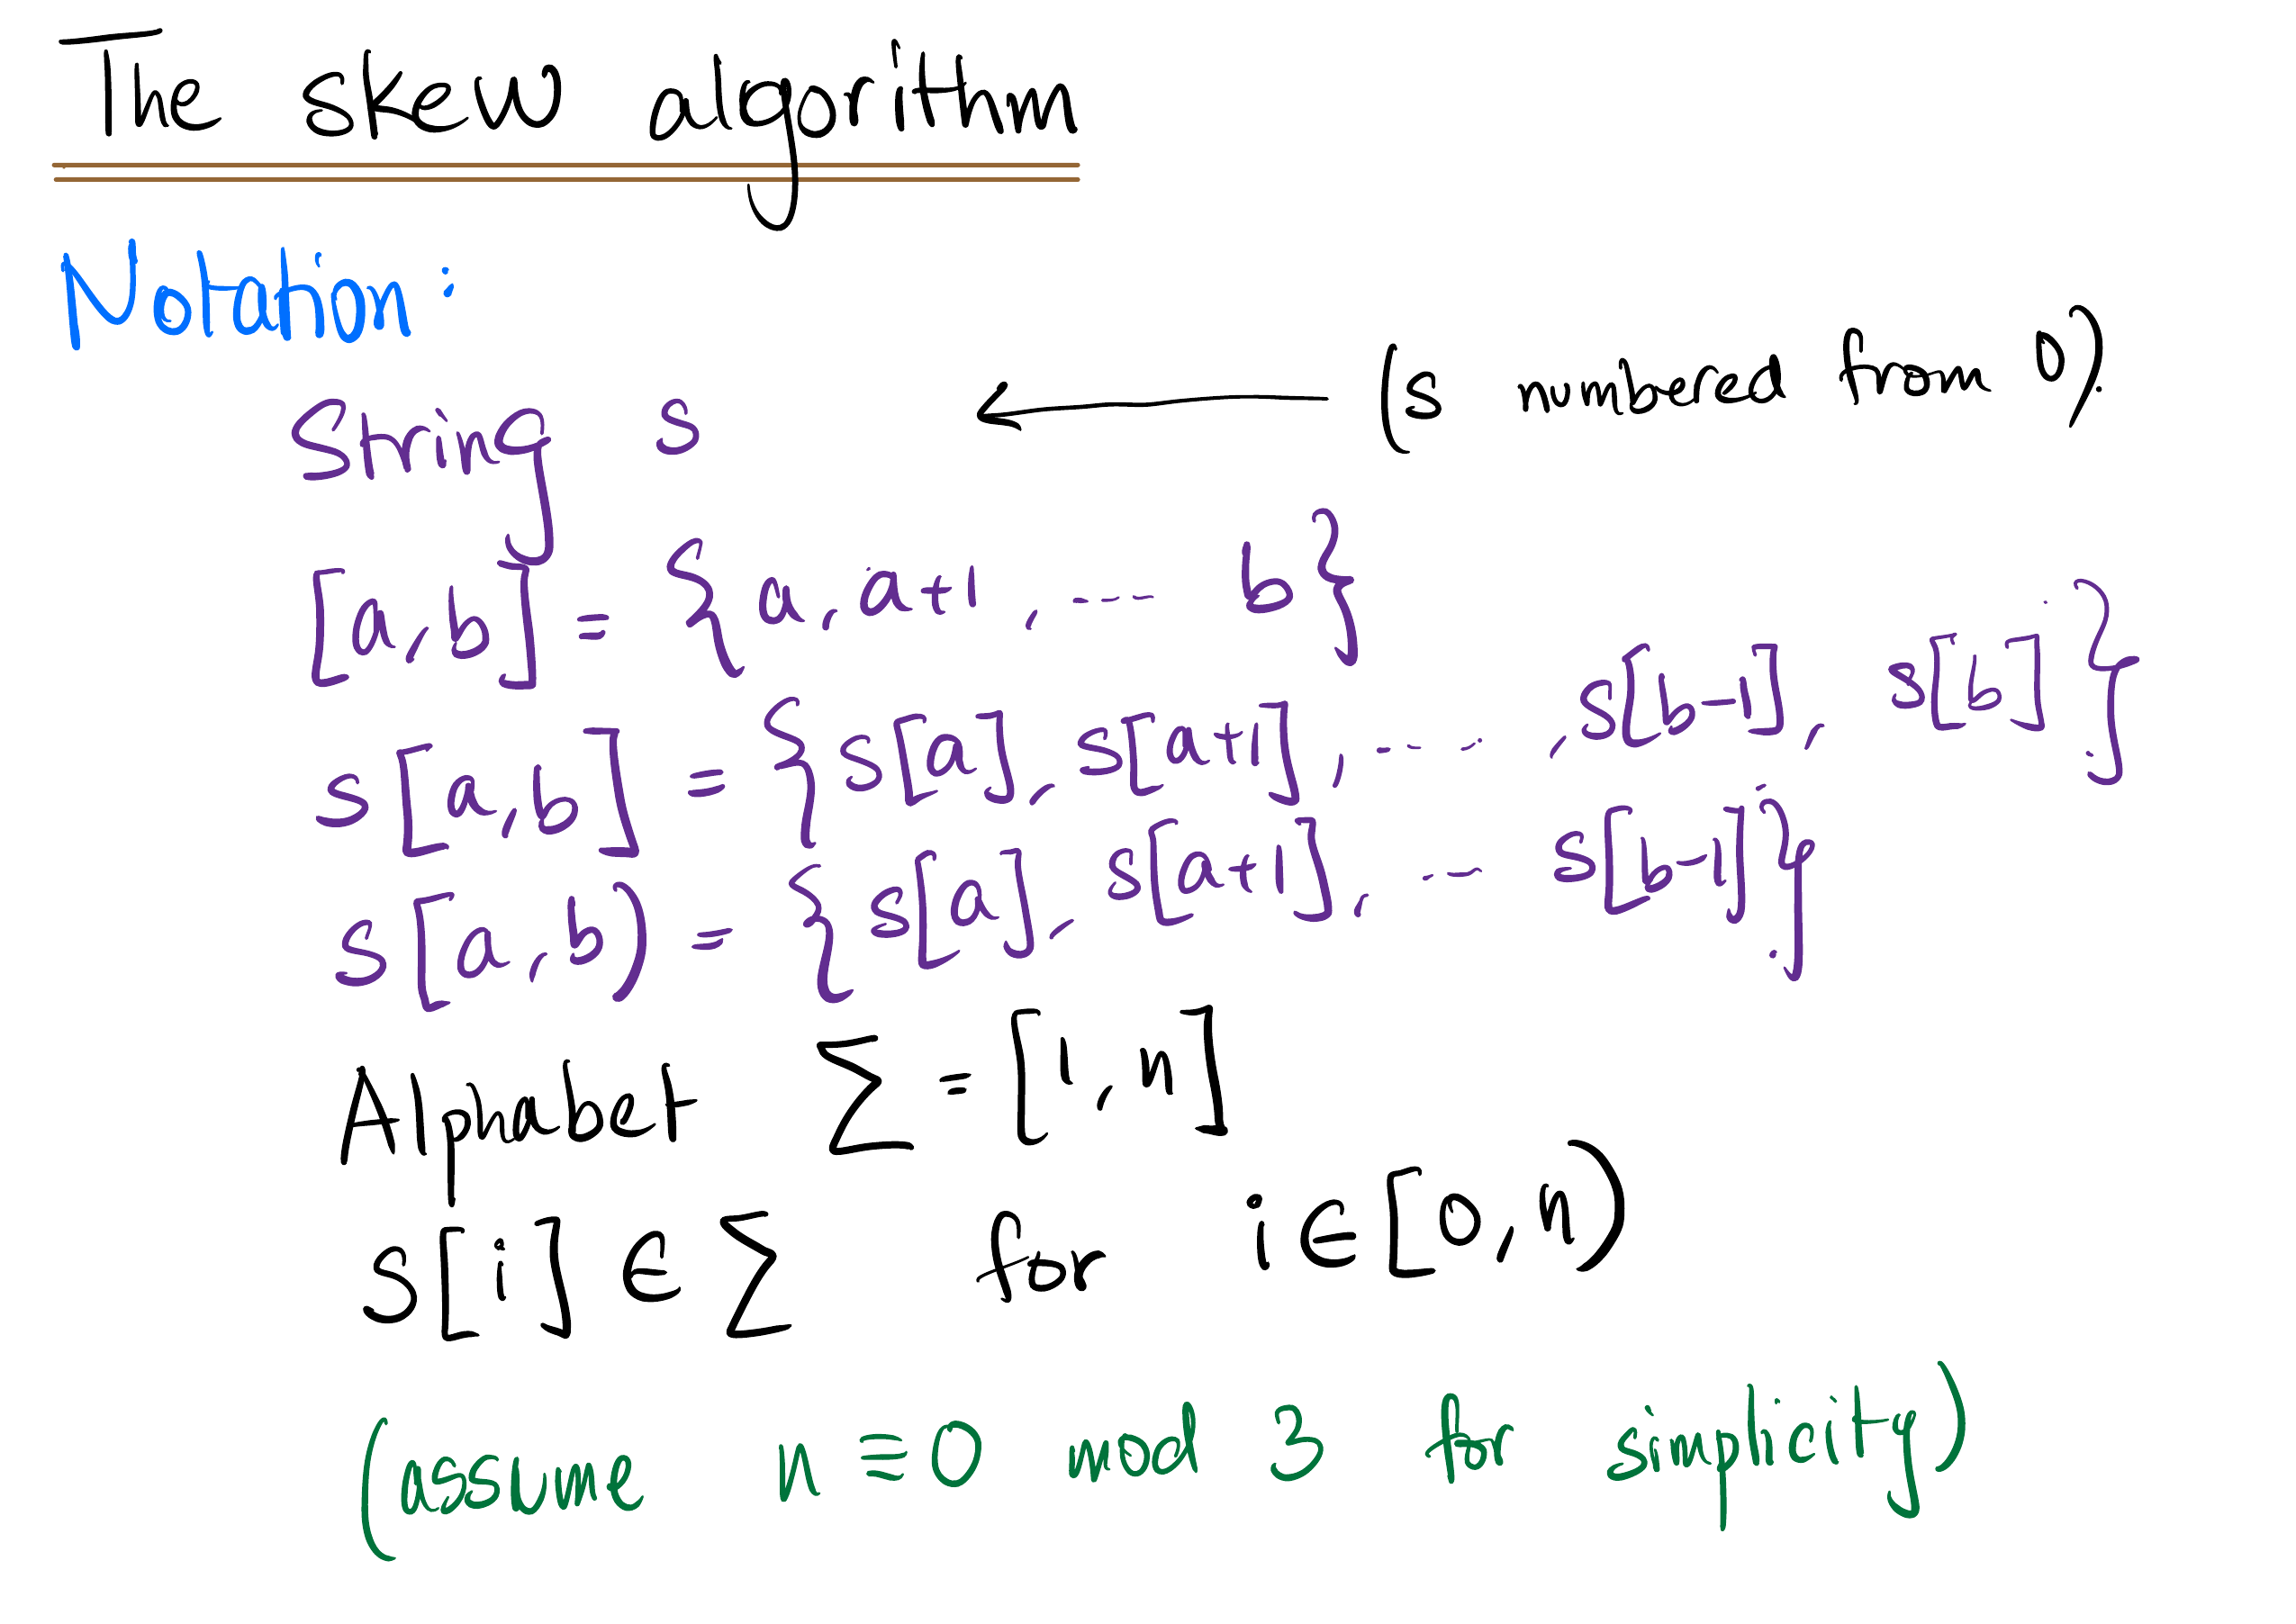 The skew algorithm
Notation:
String s ← (s numbered from 0).
[a,b] = {a, a+1, ---- b}
s[a,b] = {s[a], s[a+1], ---- , s[b-1], s[b]}
s[a,b) = {s[a], s[a+1], --- s[b-1]}
Alphabet Σ = [1,n]
s[i] ∈ Σ for i ∈ [0,n)
(assume n ≡ 0 mod 3 for simplicity)